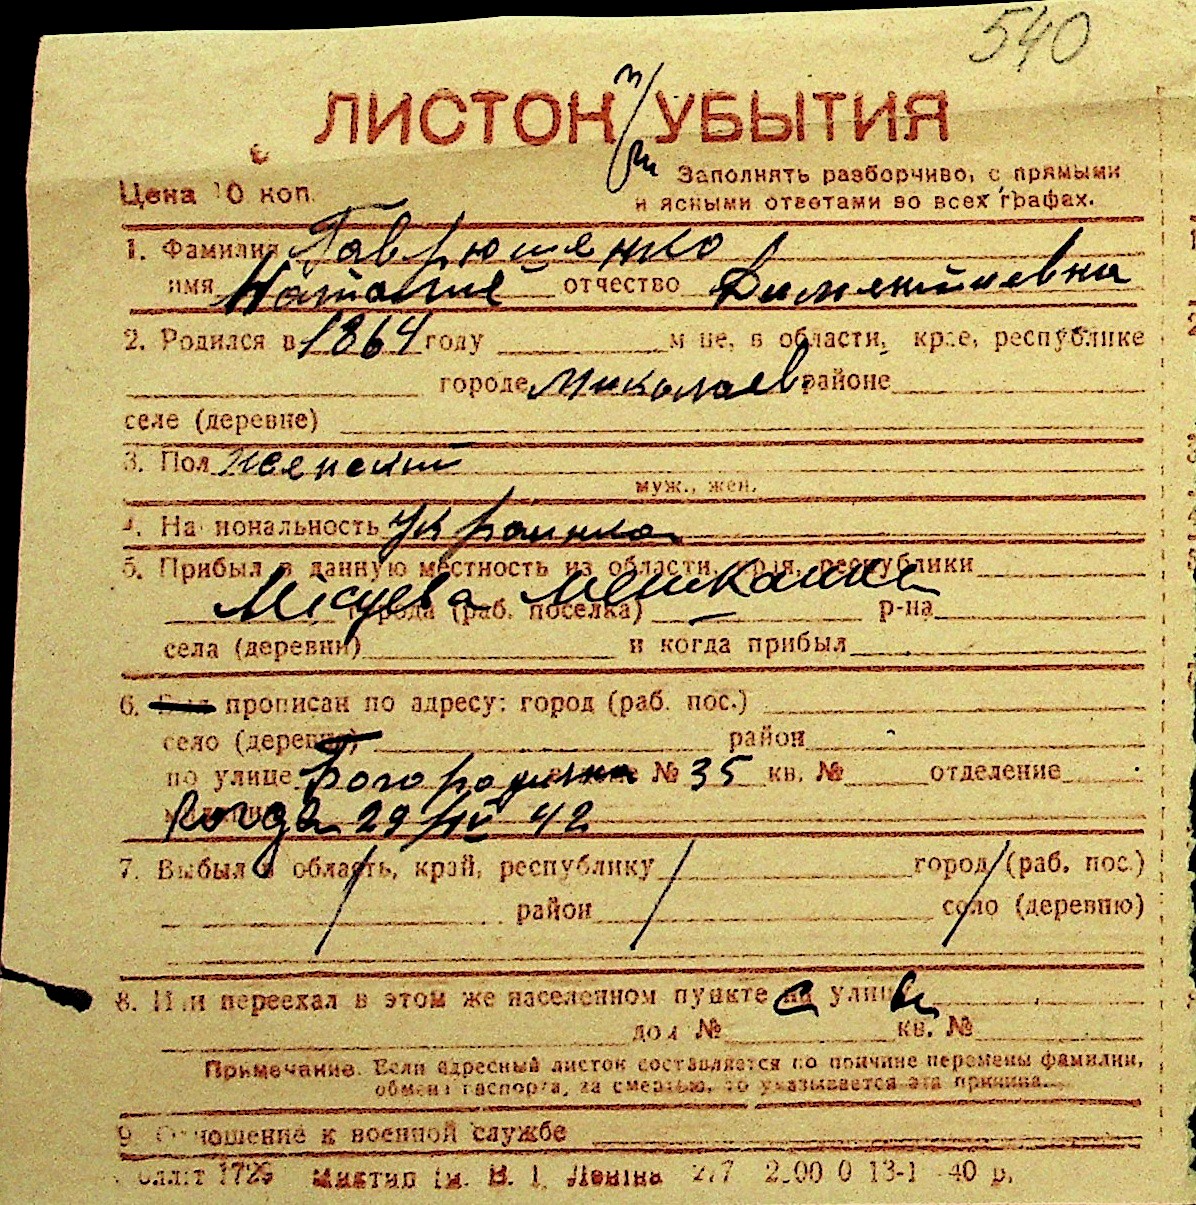 540
ЛИСТОК УБЫТИЯ
Цена 10 коп.
Заполнять разборчиво, с прямыми
и ясными ответами во всех графах.
1. Фамилия Гаврюшенко
имя Наталие отчество Диментиевна
2. Родился в 1864 году м-це, в области, крае, республике
городе Миколаев районе
селе (деревне)
3. Пол женский
муж., жен.
4. Национальность Украинка
5. Прибыл в данную местность из области, края, республики
Місцева Мешканка
города (раб. поселка) р-на
села (деревни) и когда прибыл
6. Был прописан по адресу: город (раб. пос.)
село (деревня) район
по улице № 35 кв. № отделение
Когда 29/IV 42
7. Выбыл в область, край, республику город (раб. пос.)
район село (деревню)
8. Или переехал в этом же населенном пункте на улицу
дом № кв. №
Примечание. Если адресный листок составляется по причине перемены фамилии,
обмена паспорта, за смертью, то указывается эта причина.
9. Отношение к военной службе
1729 Миктип ім. В. І. Леніна 13-1 40 р.